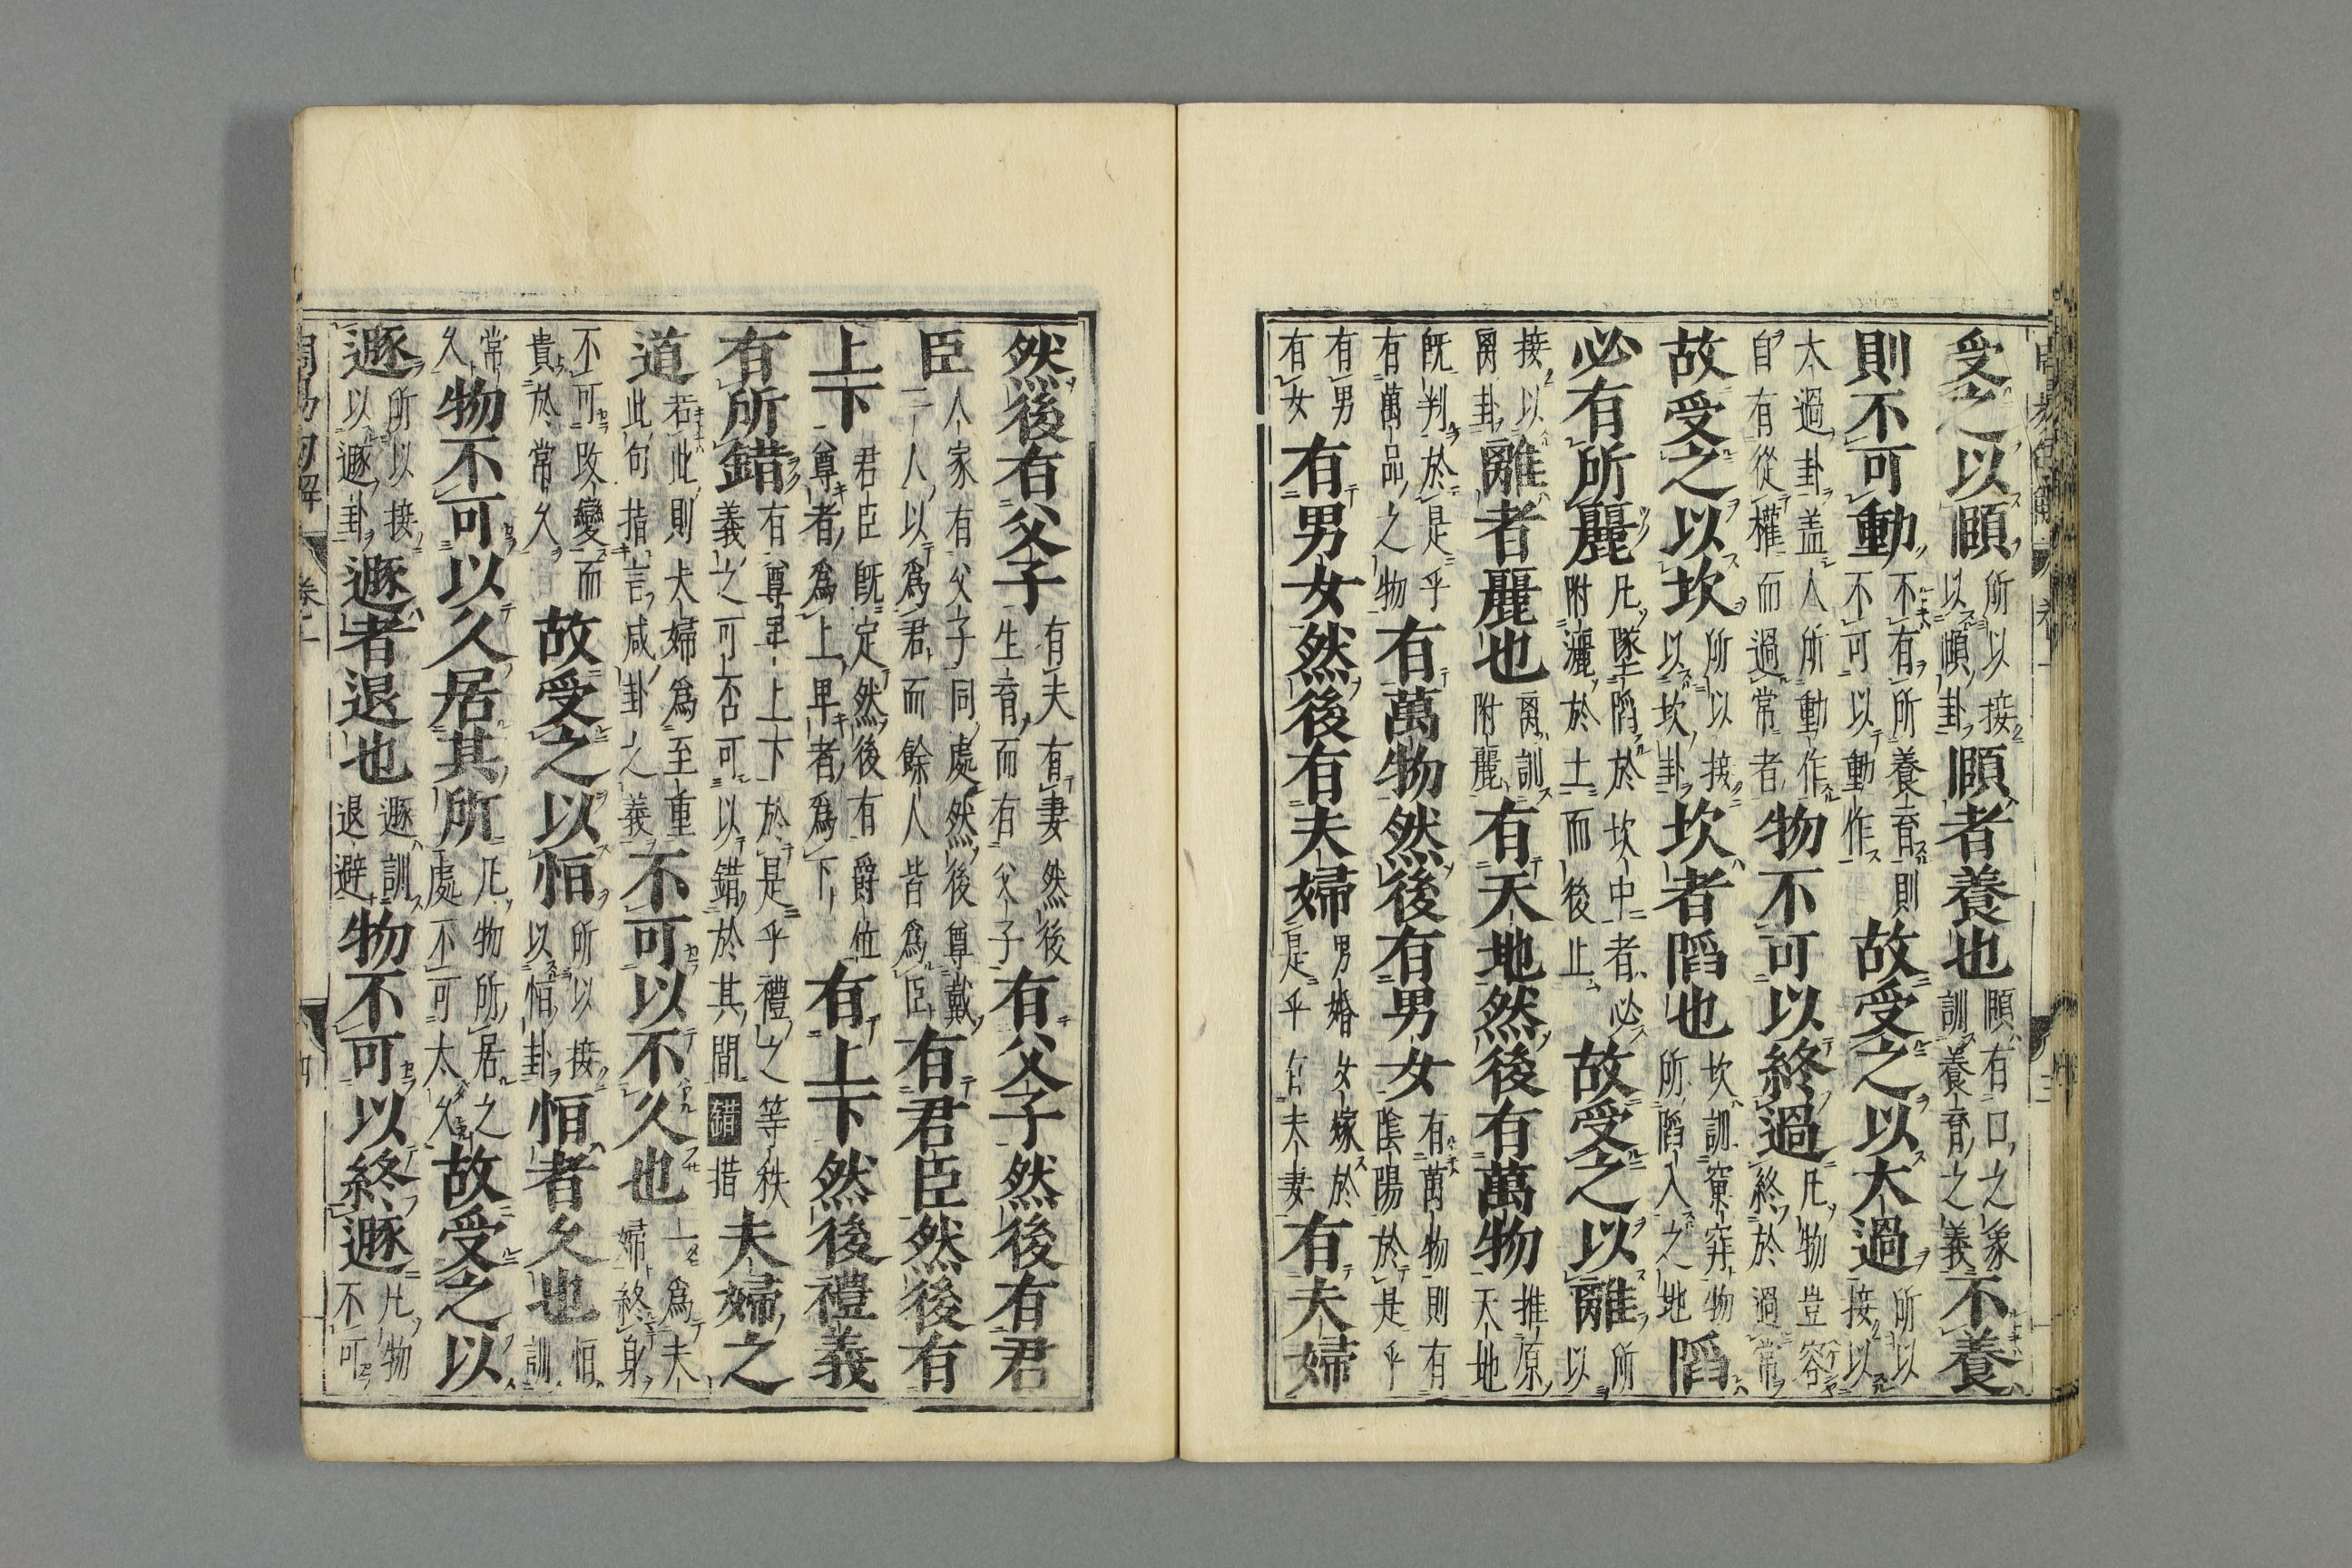 受之以頤所以接以頤卦頤者養也頤有口之象訓養育之義不養
則不可動不有所養育則不可以動作故受之以大過所以接以
太過卦盖人所動作自有從權而過常者物不可以終過凡物豈容終於過常
故受之以坎所以接以坎卦坎者陷也坎訓穽物所陷入之地陷
必有所麗凡墜陷於坎中者必附灑於土而後止故受之以離所以
接以离卦離者麗也离訓附麗有天地然後有萬物推原天地
既判於是乎有萬品之物有萬物然後有男女有萬物則有陰陽於是乎
有男有女有男女然後有夫婦男婚女嫁於是乎有夫妻有夫婦
然後有父子有夫有妻然後生育而有父子有父子然後有君
臣人家有父子同處然後尊戴一人以爲君而餘人皆爲臣有君臣然後有
上下君臣既定然後有爵位尊者爲上卑者爲下有上下然後禮義
有所錯有尊卑上下於是乎禮之等秩義之可否可以錯於其間錯措夫婦之
道若此則夫婦爲至重此句指言咸卦之義不可以不久也一爲夫婦終身
不可改變而貴於常久故受之以恒所以接以恒卦恒者久也恒訓
常久物不可以久居其所凡物所居之處不可太久故受之以
遯所以接以遯卦遯者退也遯訓退避物不可以終遯凡物不可
周易句解 卷二 四